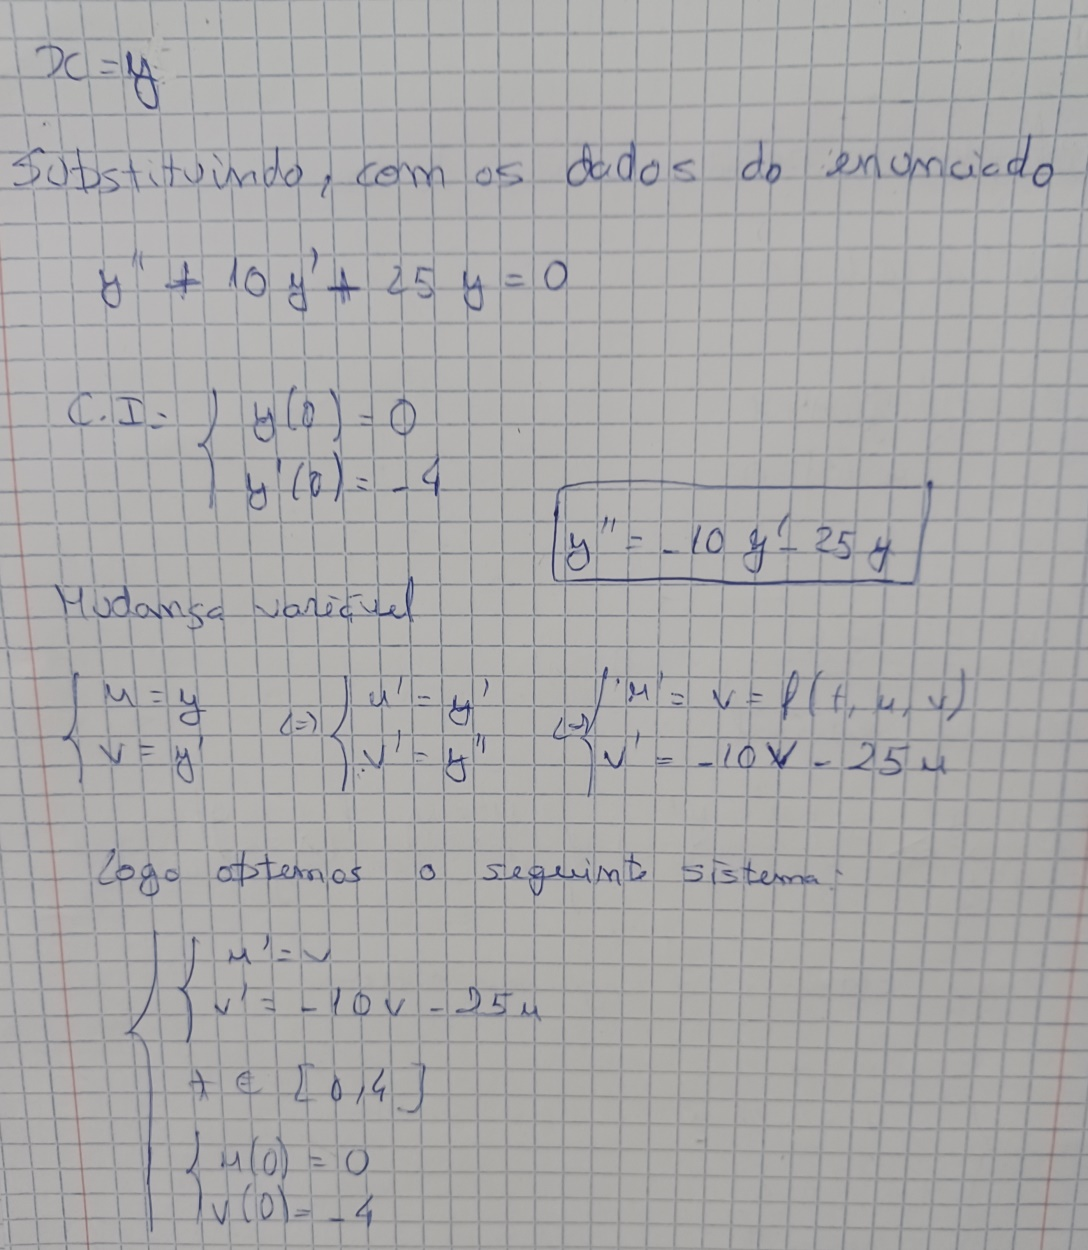 x = y
Substituindo, com os dados do enunciado
y'' + 10 y' + 25 y = 0
C.I = { y(0) = 0
y'(0) = -4
y'' = -10 y' - 25 y
Mudança variável
{ u = y (=) { u' = y' (=) { u' = v = f(t, u, v)
v = y' v' = y'' v' = -10v - 25u
Logo obtemos o seguinte sistema:
{ { u' = v
v' = -10v - 25u
t ∈ [0,4]
{ u(0) = 0
v(0) = -4